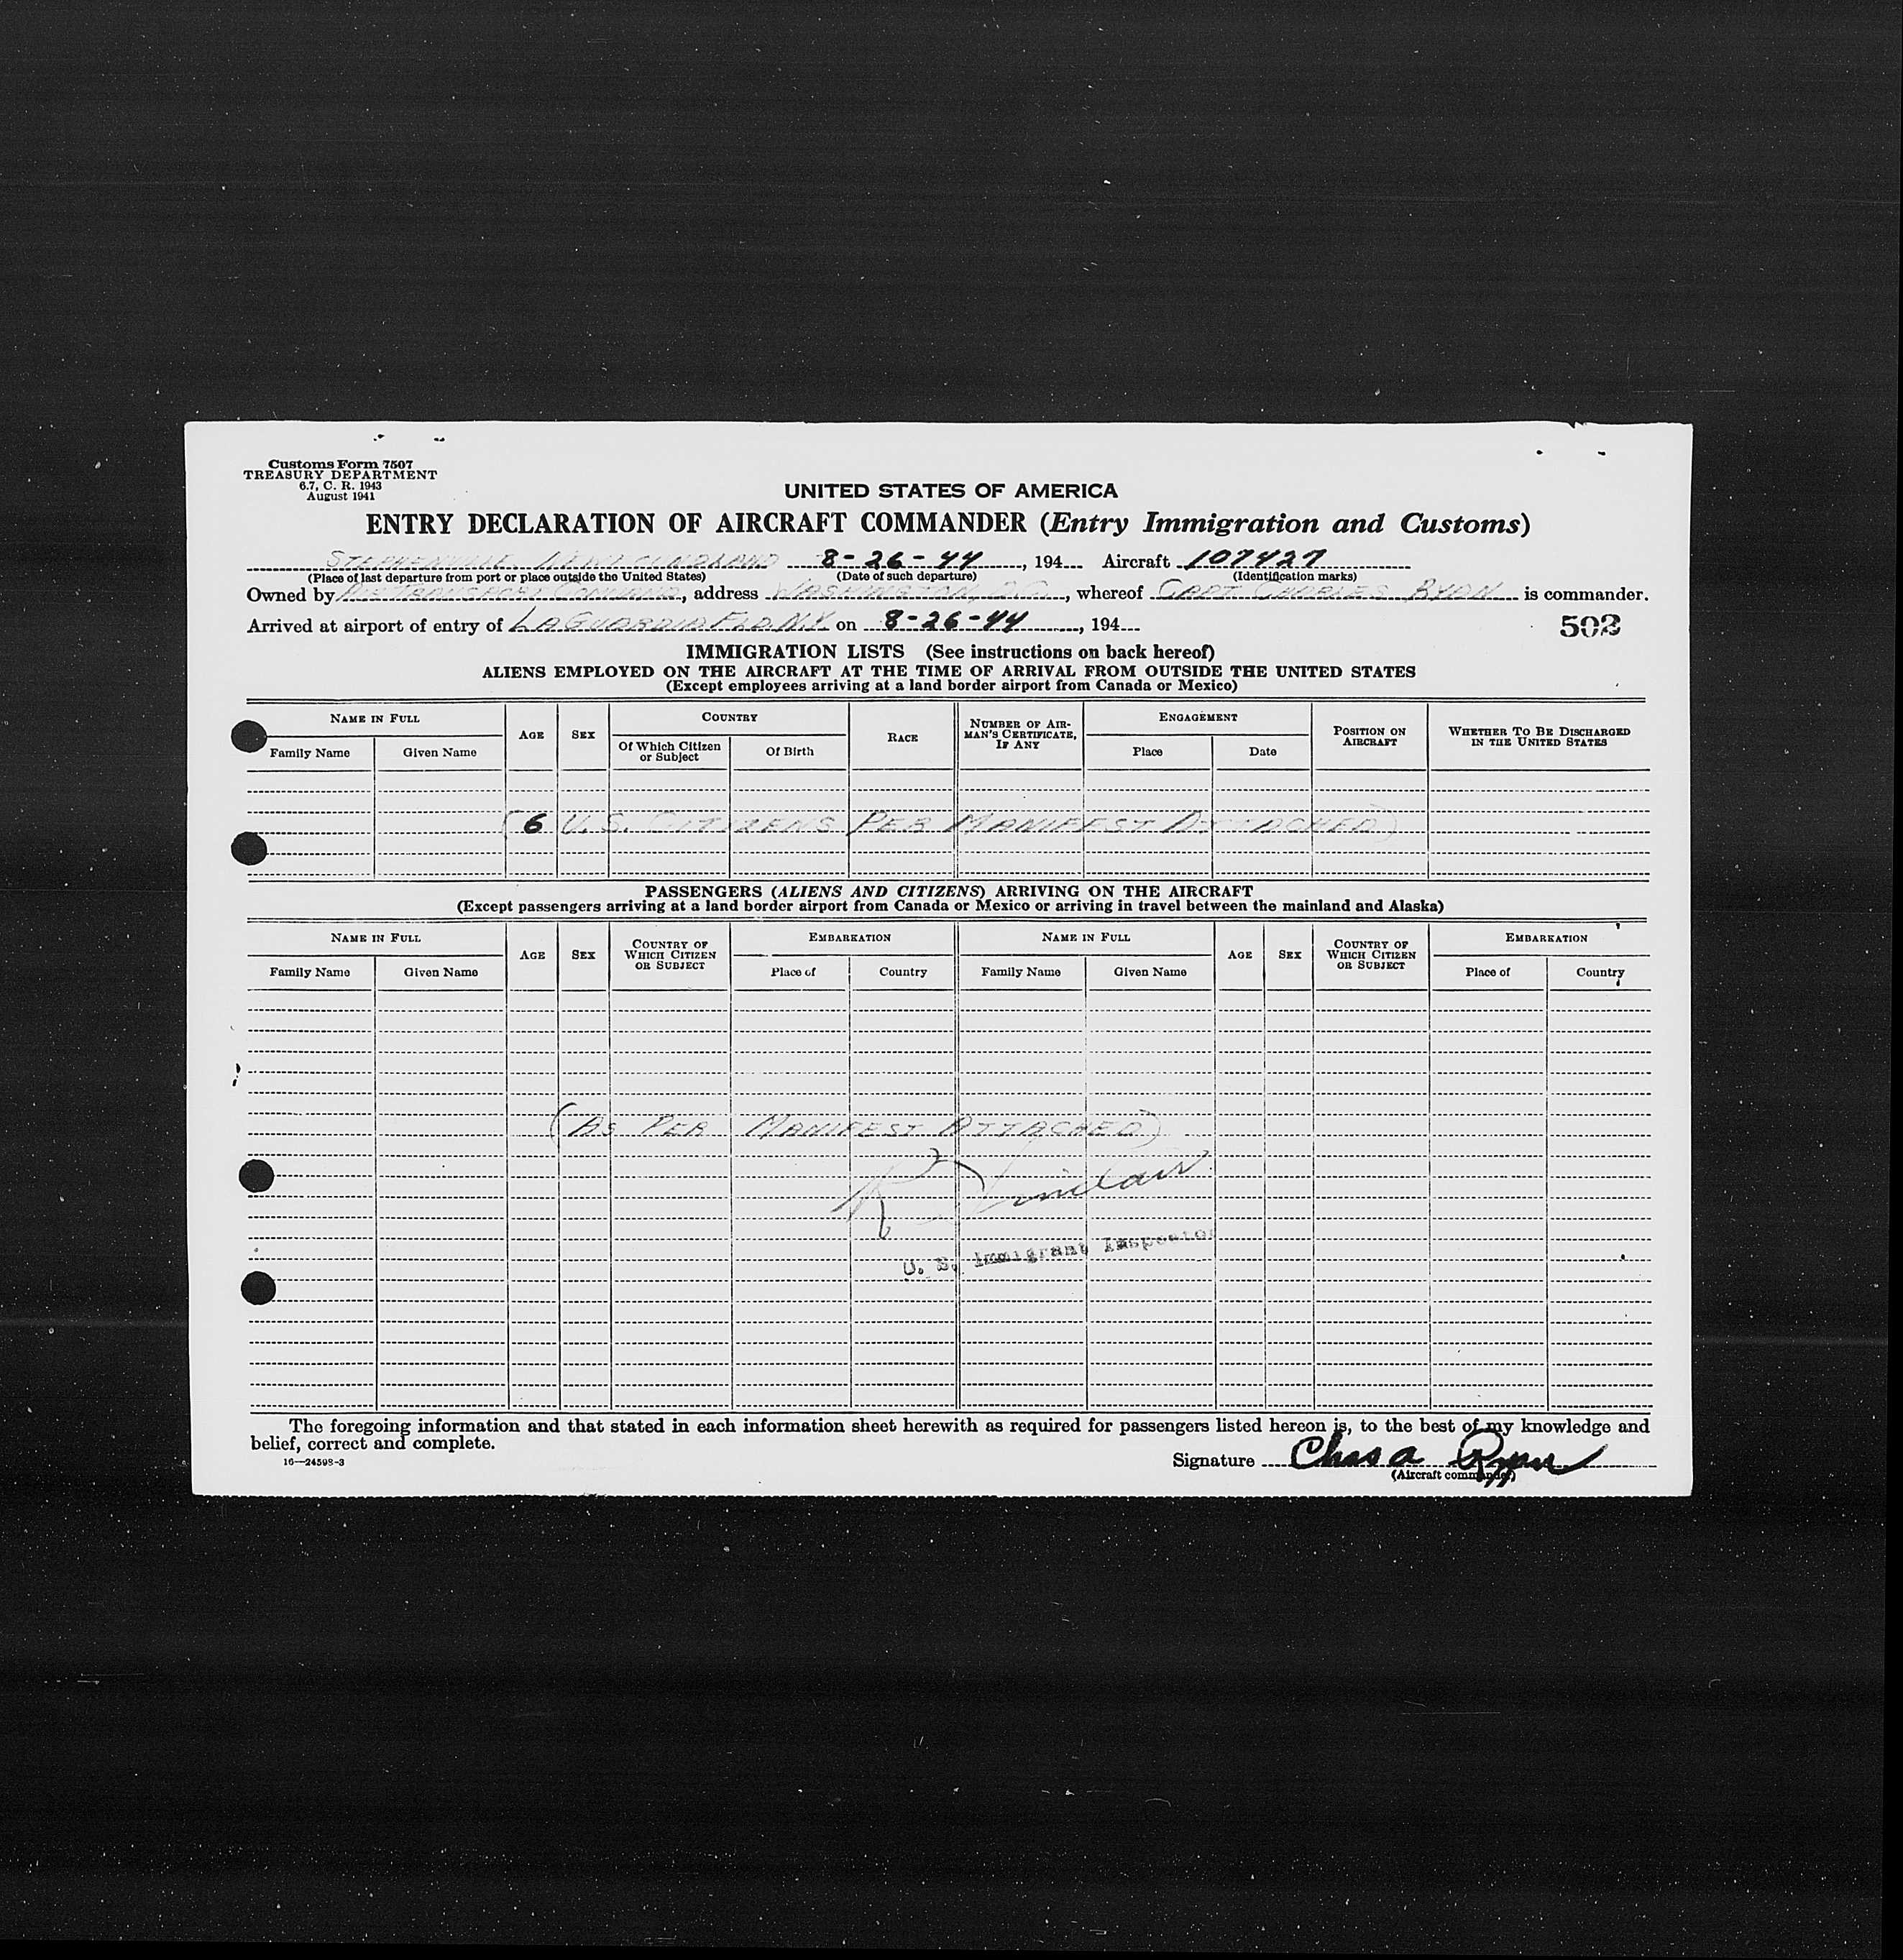 Customs Form 7507
TREASURY DEPARTMENT
6.7, C. R. 1943
August 1941
UNITED STATES OF AMERICA
ENTRY DECLARATION OF AIRCRAFT COMMANDER (Entry Immigration and Customs)
STEPHENVILLE, NEWFOUNDLAND 8-26-44, 194 Aircraft 107427
(Place of last departure from port or place outside the United States) (Date of such departure) (Identification marks)
Owned by AIR TRANSPORT COMMAND, address WASHINGTON, D.C., whereof CAPT CHARLES RYAN is commander.
Arrived at airport of entry of LAGUARDIA FLD N.Y. on 8-26-44, 194
502
IMMIGRATION LISTS (See instructions on back hereof)
ALIENS EMPLOYED ON THE AIRCRAFT AT THE TIME OF ARRIVAL FROM OUTSIDE THE UNITED STATES
(Except employees arriving at a land border airport from Canada or Mexico)
NAME IN FULL AGE SEX COUNTRY RACE NUMBER OF AIRMAN'S CERTIFICATE, IF ANY ENGAGEMENT POSITION ON AIRCRAFT WHETHER TO BE DISCHARGED IN THE UNITED STATES
Family Name Given Name Of Which Citizen or Subject Of Birth Place Date
(6 U.S. CITIZENS PER MANIFEST ATTACHED)
PASSENGERS (ALIENS AND CITIZENS) ARRIVING ON THE AIRCRAFT
(Except passengers arriving at a land border airport from Canada or Mexico or arriving in travel between the mainland and Alaska)
NAME IN FULL AGE SEX COUNTRY OF WHICH CITIZEN OR SUBJECT EMBARKATION NAME IN FULL AGE SEX COUNTRY OF WHICH CITIZEN OR SUBJECT EMBARKATION
Family Name Given Name Place of Country Family Name Given Name Place of Country
(AS PER MANIFEST ATTACHED)
U. S. Immigrant Inspector
The foregoing information and that stated in each information sheet herewith as required for passengers listed hereon is, to the best of my knowledge and
belief, correct and complete.
16—24598-3
Signature Chas a Ryan
(Aircraft commander)